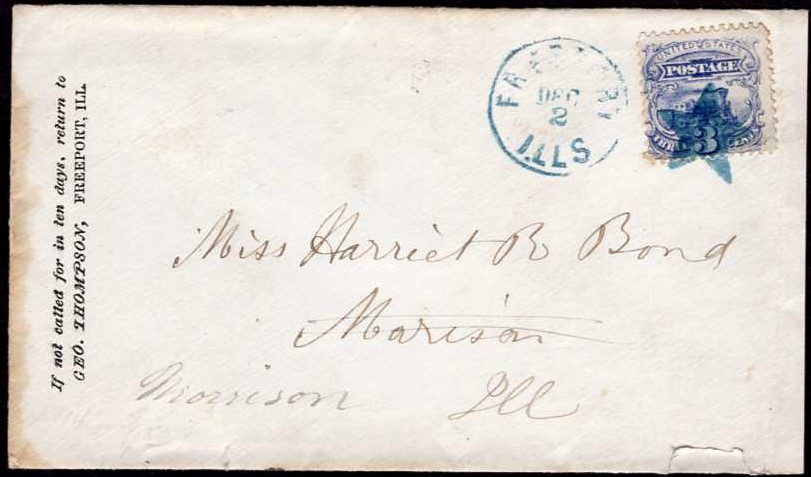 If not called for in ten days, return to
GEO. THOMPSON, FREEPORT, ILL.
FREEPORT
DEC
2
ILLS
UNITED STATES
POSTAGE
THREE 3 CENTS
Miss Harriet R Bond
Marison
Morrison Ill